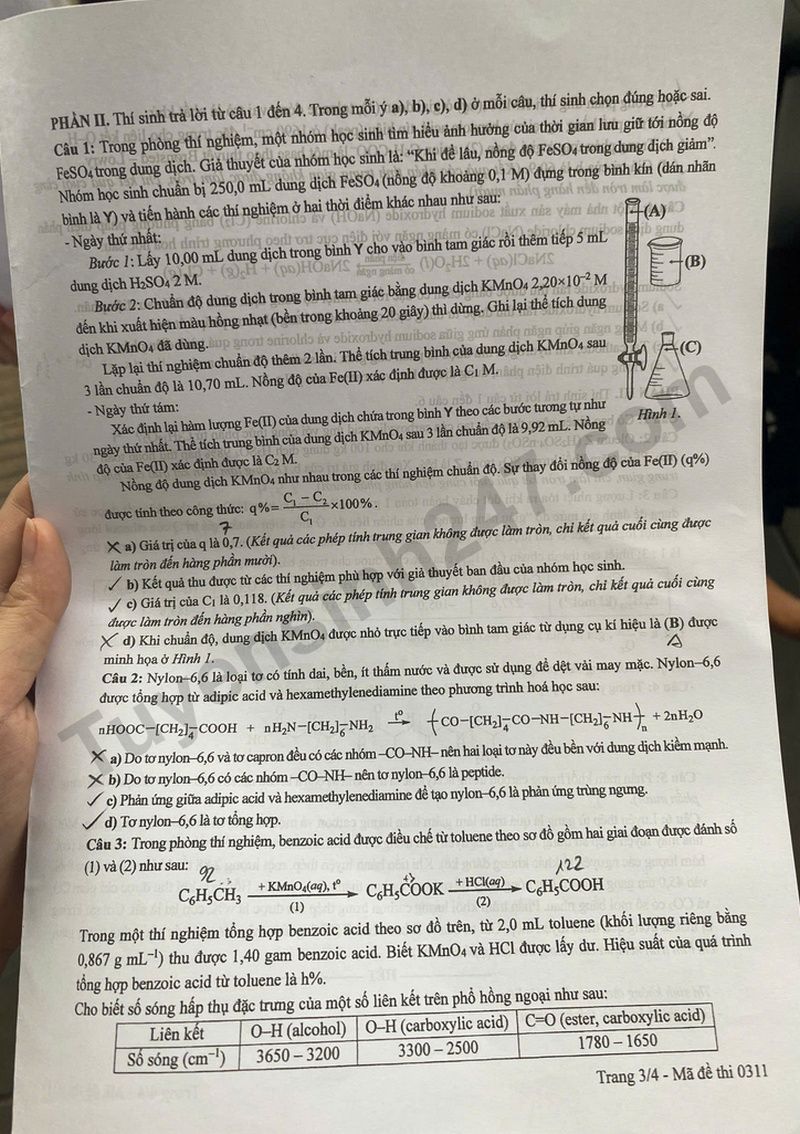 PHẦN II. Thí sinh trả lời từ câu 1 đến 4. Trong mỗi ý a), b), c), d) ở mỗi câu, thí sinh chọn đúng hoặc sai.
Câu 1: Trong phòng thí nghiệm, một nhóm học sinh tìm hiểu ảnh hưởng của thời gian lưu giữ tới nồng độ
FeSO₄ trong dung dịch. Giả thuyết của nhóm học sinh là: “Khi để lâu, nồng độ FeSO₄ trong dung dịch giảm”.
Nhóm học sinh chuẩn bị 250,0 mL dung dịch FeSO₄ (nồng độ khoảng 0,1 M) đựng trong bình kín (dán nhãn
bình là Y) và tiến hành các thí nghiệm ở hai thời điểm khác nhau như sau:
- Ngày thứ nhất:
Bước 1: Lấy 10,00 mL dung dịch trong bình Y cho vào bình tam giác rồi thêm tiếp 5 mL
dung dịch H₂SO₄ 2 M.
Bước 2: Chuẩn độ dung dịch trong bình tam giác bằng dung dịch KMnO₄ 2,20×10⁻² M
đến khi xuất hiện màu hồng nhạt (bền trong khoảng 20 giây) thì dừng. Ghi lại thể tích dung
dịch KMnO₄ đã dùng.
Lặp lại thí nghiệm chuẩn độ thêm 2 lần. Thể tích trung bình của dung dịch KMnO₄ sau
3 lần chuẩn độ là 10,70 mL. Nồng độ của Fe(II) xác định được là C₁ M.
- Ngày thứ tám:
Xác định lại hàm lượng Fe(II) của dung dịch chứa trong bình Y theo các bước tương tự như
ngày thứ nhất. Thể tích trung bình của dung dịch KMnO₄ sau 3 lần chuẩn độ là 9,92 mL. Nồng
độ của Fe(II) xác định được là C₂ M.
(A)
(B)
(C)
Hình 1.
Nồng độ dung dịch KMnO₄ như nhau trong các thí nghiệm chuẩn độ. Sự thay đổi nồng độ của Fe(II) (q%)
được tính theo công thức: q% = (C₁ − C₂)/C₁ ×100% .
7
a) Giá trị của q là 0,7. (Kết quả các phép tính trung gian không được làm tròn, chỉ kết quả cuối cùng được
làm tròn đến hàng phần mười).
b) Kết quả thu được từ các thí nghiệm phù hợp với giả thuyết ban đầu của nhóm học sinh.
c) Giá trị của C₁ là 0,118. (Kết quả các phép tính trung gian không được làm tròn, chỉ kết quả cuối cùng
được làm tròn đến hàng phần nghìn).
d) Khi chuẩn độ, dung dịch KMnO₄ được nhỏ trực tiếp vào bình tam giác từ dụng cụ kí hiệu là (B) được
A
minh họa ở Hình 1.
Câu 2: Nylon–6,6 là loại tơ có tính dai, bền, ít thấm nước và được sử dụng để dệt vải may mặc. Nylon–6,6
được tổng hợp từ adipic acid và hexamethylenediamine theo phương trình hoá học sau:
nHOOC–[CH₂]₄–COOH + nH₂N–[CH₂]₆–NH₂ —t°→ (CO–[CH₂]₄–CO–NH–[CH₂]₆–NH)ₙ + 2nH₂O
a) Do tơ nylon–6,6 và tơ capron đều có các nhóm –CO–NH– nên hai loại tơ này đều bền với dung dịch kiềm mạnh.
b) Do tơ nylon–6,6 có các nhóm –CO–NH– nên tơ nylon–6,6 là peptide.
c) Phản ứng giữa adipic acid và hexamethylenediamine để tạo nylon–6,6 là phản ứng trùng ngưng.
d) Tơ nylon–6,6 là tơ tổng hợp.
Câu 3: Trong phòng thí nghiệm, benzoic acid được điều chế từ toluene theo sơ đồ gồm hai giai đoạn được đánh số
(1) và (2) như sau:
92 122
C₆H₅CH₃ —+ KMnO₄(aq), t° (1)→ C₆H₅COOK —+ HCl(aq) (2)→ C₆H₅COOH
Trong một thí nghiệm tổng hợp benzoic acid theo sơ đồ trên, từ 2,0 mL toluene (khối lượng riêng bằng
0,867 g mL⁻¹) thu được 1,40 gam benzoic acid. Biết KMnO₄ và HCl được lấy dư. Hiệu suất của quá trình
tổng hợp benzoic acid từ toluene là h%.
Cho biết số sóng hấp thụ đặc trưng của một số liên kết trên phổ hồng ngoại như sau:
Liên kết O–H (alcohol) O–H (carboxylic acid) C=O (ester, carboxylic acid)
Số sóng (cm⁻¹) 3650 – 3200 3300 – 2500 1780 – 1650
Trang 3/4 - Mã đề thi 0311
Tuyensinh247.com